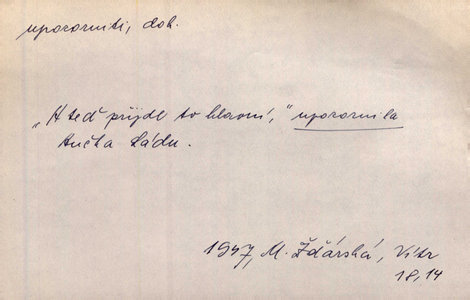 upozorniti, dok.
„A teď přijde to hlavní,“ upozornila
Anča Ládu.
1947, M. Žďárská, Vítr
18, 14